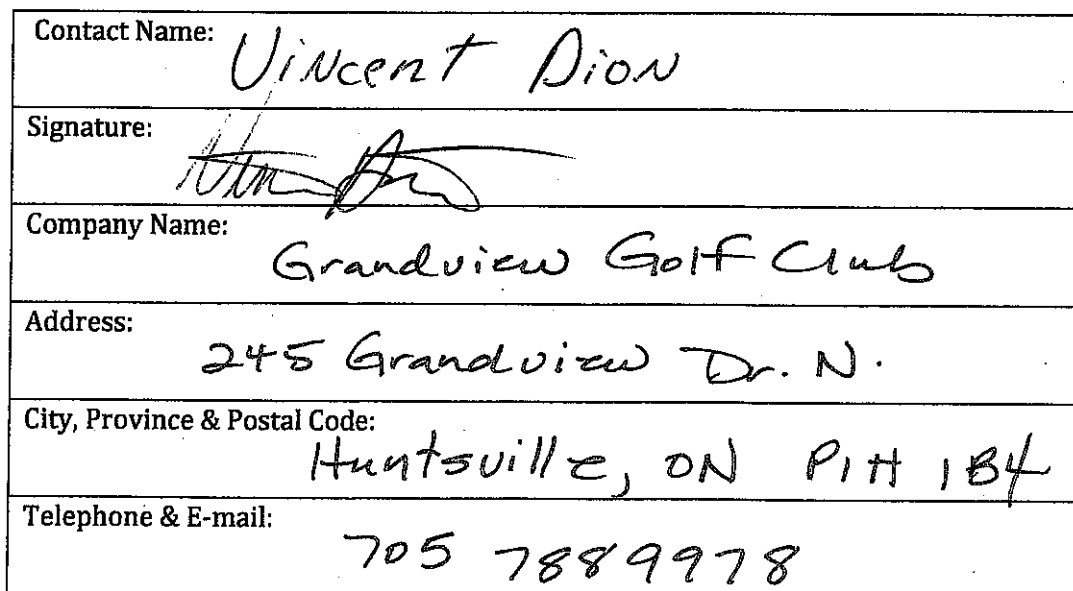 Contact Name: Vincent Dion
Signature:
Company Name: Grandview Golf Club
Address: 245 Grandview Dr. N.
City, Province & Postal Code: Huntsville, ON P1H 1B4
Telephone & E-mail: 705 7889978